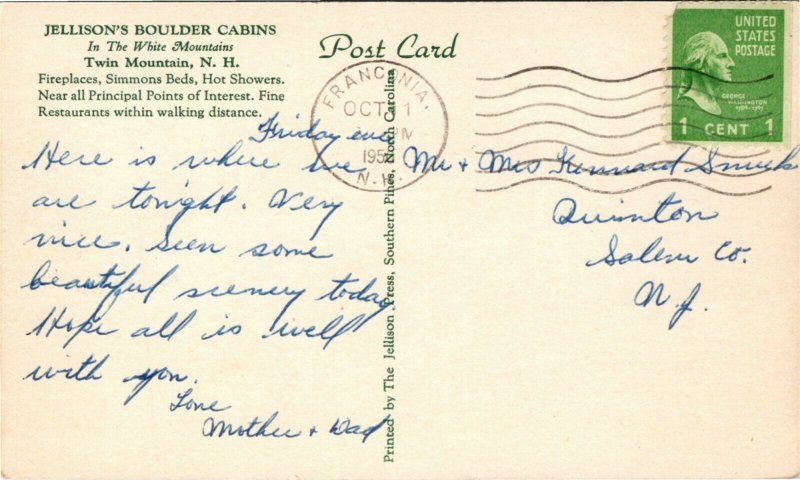 JELLISON'S BOULDER CABINS
In The White Mountains
Twin Mountain, N. H.
Fireplaces, Simmons Beds, Hot Showers.
Near all Principal Points of Interest. Fine
Restaurants within walking distance.
Post Card
FRANCONIA,
OCT 1
PM
195
N.H.
UNITED
STATES
POSTAGE
GEORGE
WASHINGTON
1 CENT 1
Friday eve
Here is where we
are tonight. Very
nice. Seen some
beautiful scenery today
Hope all is well
with you.
Love
Mother + Dad
Printed by The Jellison Press, Southern Pines, North Carolina
Mr + Mrs Kennard
Quinton
Salem Co.
N.J.